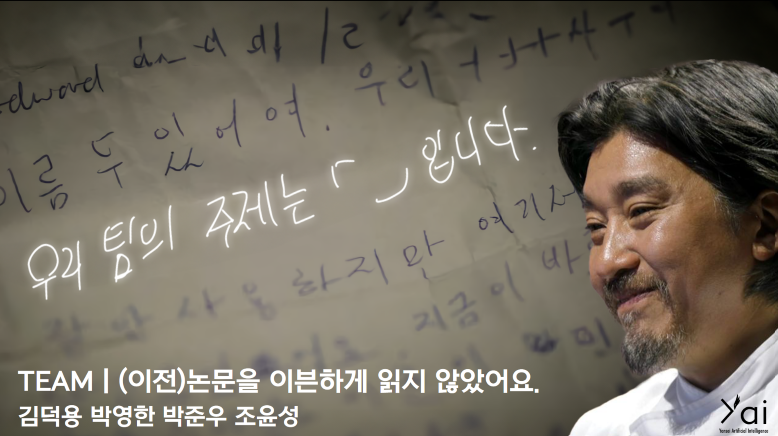 이름 두 있어여. 우리
우리 팀의 주제는 「 」입니다.
사용하지만 여기서
지금이 바
TEAM | (이전)논문을 이븐하게 읽지 않았어요.
김덕용 박영한 박준우 조윤성
Yai
Yonsei Artificial Intelligence